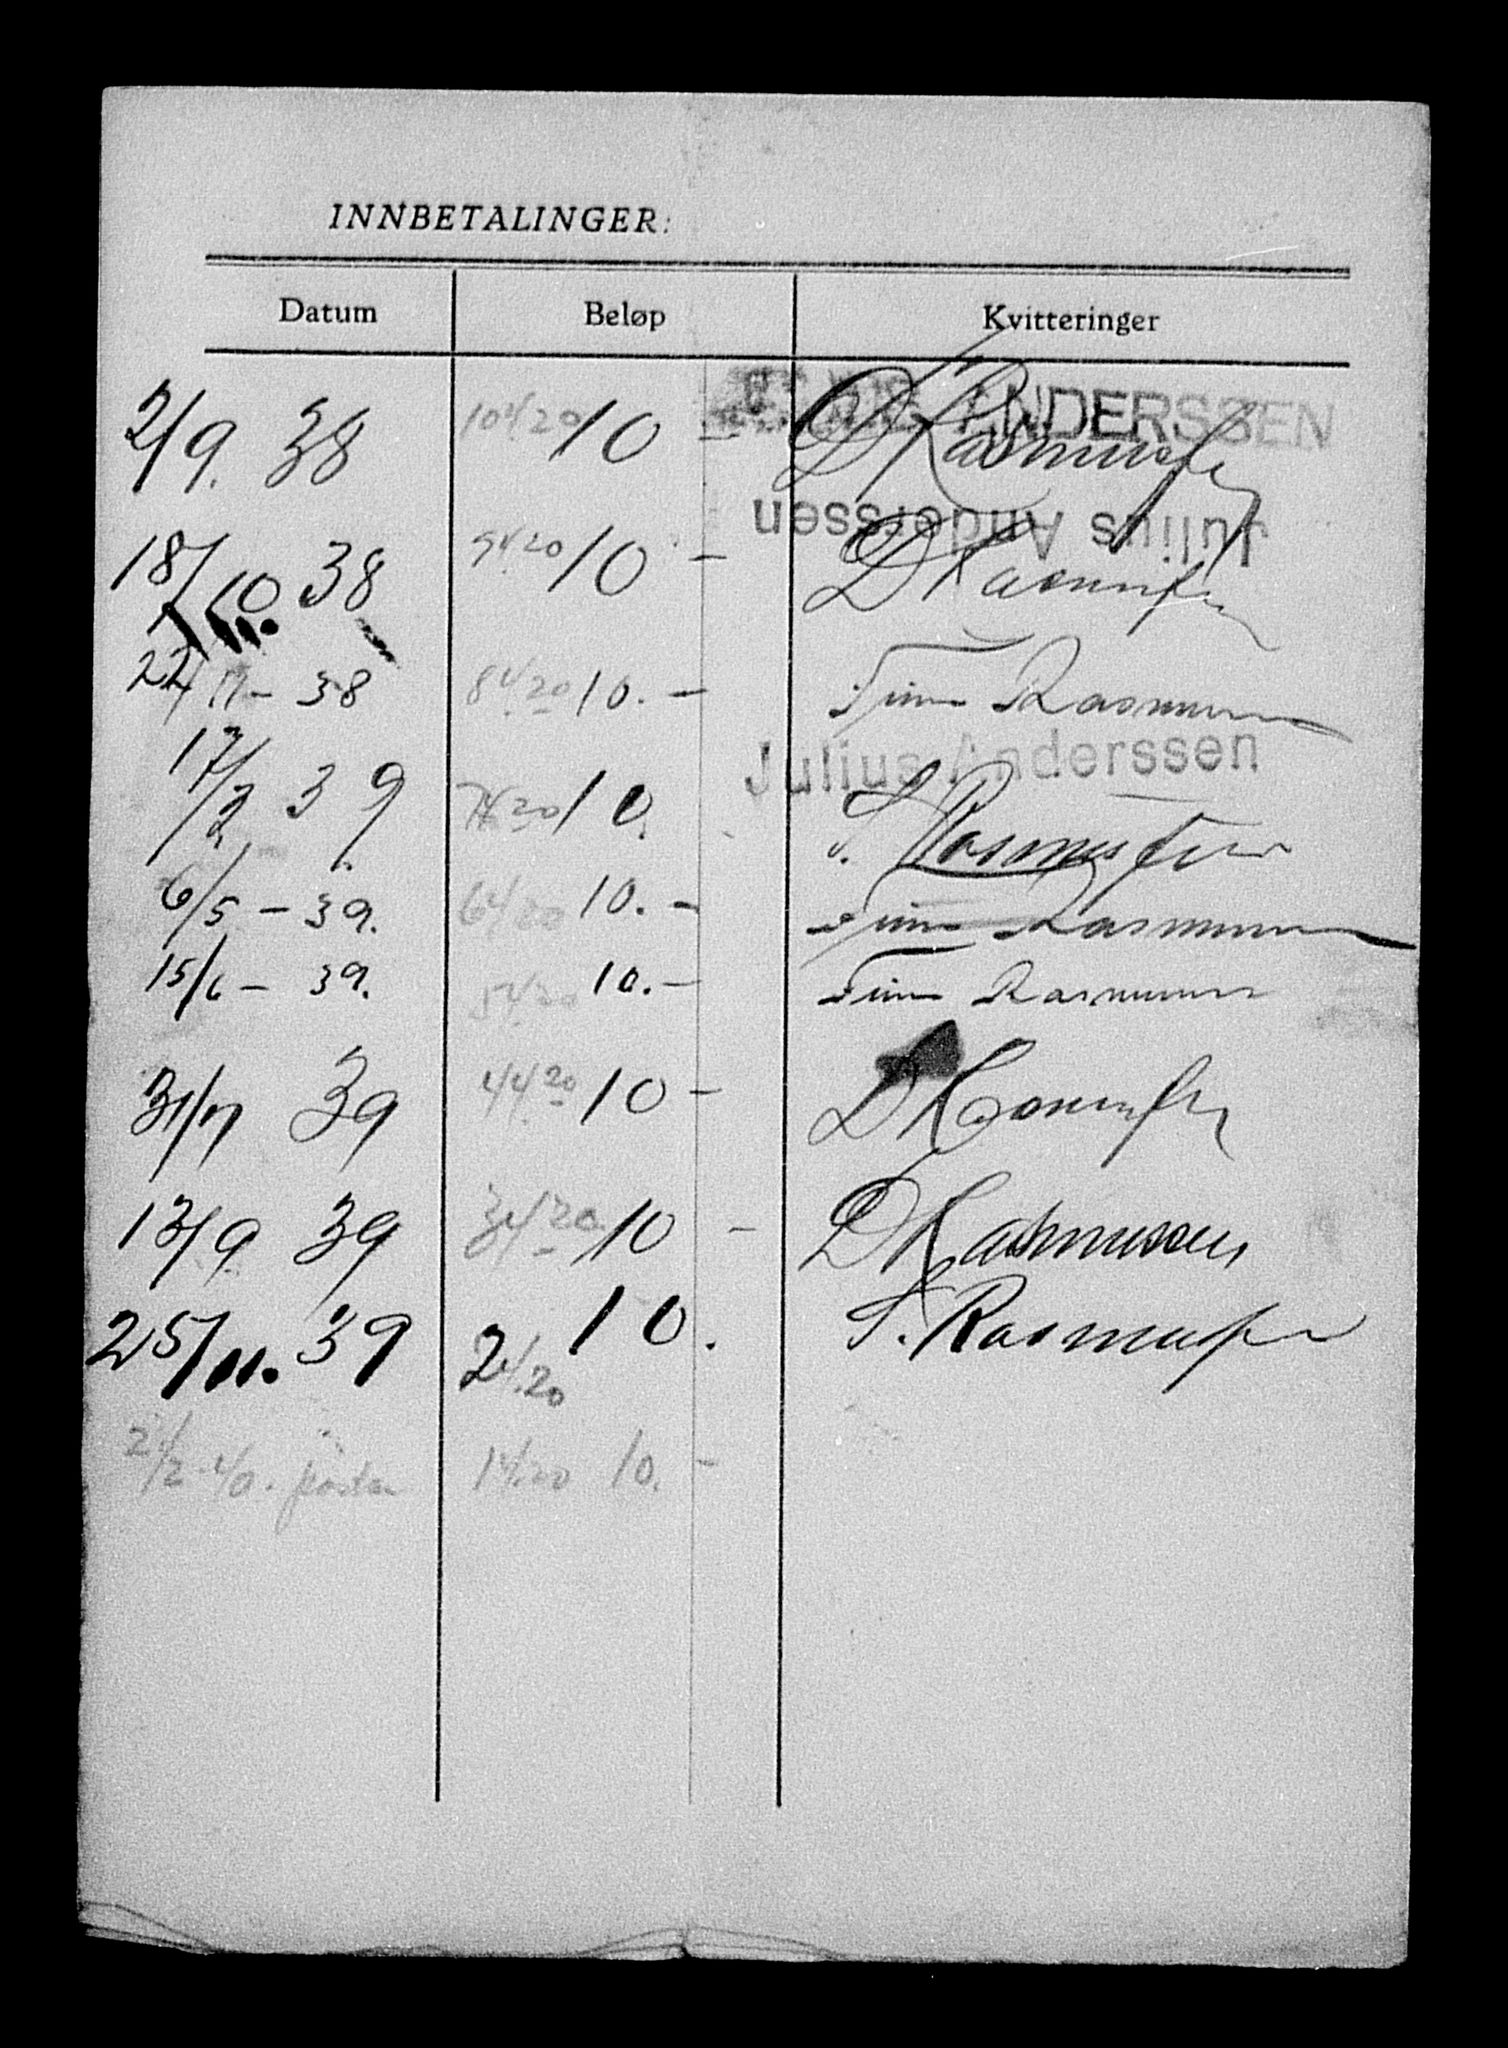 INNBETALINGER:
Datum Beløp Kvitteringer
ANDERSSEN
2/9. 38 104.20 10 - D Rasmussen
Julius Anderssen
18/10 38 94.20 10 - D Rasmussen
11.
22/11 - 38 84.20 10. - Rasmussen
Julius Anderssen
17/2 39. 74.20 10. S. Rasmussen
6/5 - 39. 64.20 10. - Rasmussen
15/6 - 39. 54.20 10. - Rasmussen
31/7 39 44.20 10 - D Rasmussen
13/9 39 34.20 10 - D Rasmussen
25/11. 39 24.20 10. S. Rasmussen
2/2 - 40. 14.20 10. -